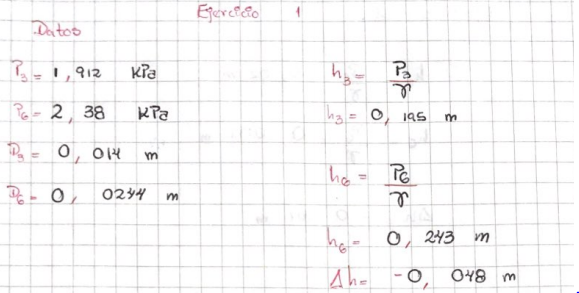 Ejercicio 1
Datos
P3 = 1,912 KPa
P6 = 2,38 KPa
D3 = 0,014 m
D6 = 0,0244 m
h3 = P3/γ
h3 = 0,195 m
h6 = P6/γ
h6 = 0,243 m
Δh = -0,048 m